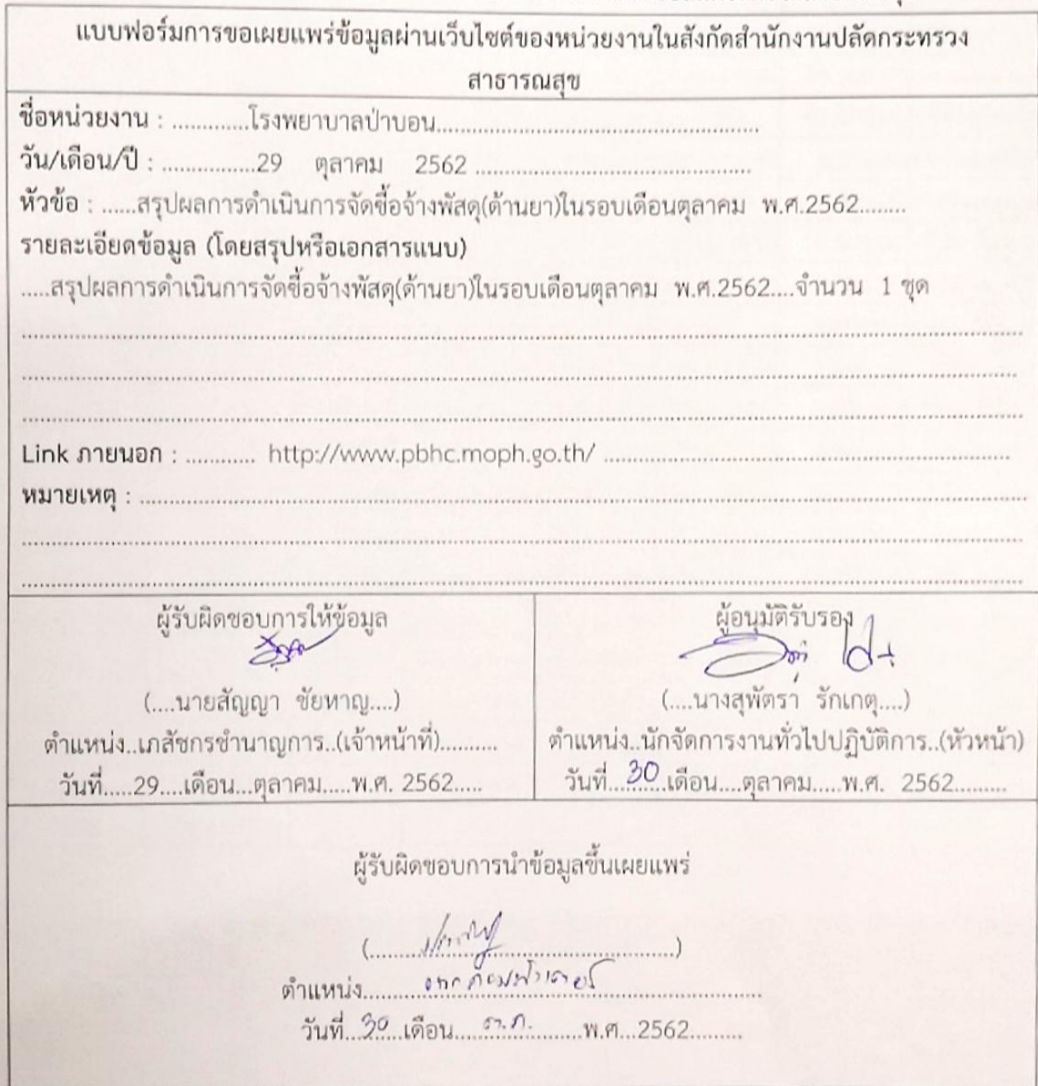 แบบฟอร์มการขอเผยแพร่ข้อมูลผ่านเว็บไซต์ของหน่วยงานในสังกัดสำนักงานปลัดกระทรวง
สาธารณสุข
ชื่อหน่วยงาน : .............โรงพยาบาลป่าบอน.......................................................
วัน/เดือน/ปี : ................29 ตุลาคม 2562 ...............................................
หัวข้อ : ......สรุปผลการดำเนินการจัดซื้อจ้างพัสดุ(ด้านยา)ในรอบเดือนตุลาคม พ.ศ.2562........
รายละเอียดข้อมูล (โดยสรุปหรือเอกสารแนบ)
.....สรุปผลการดำเนินการจัดซื้อจ้างพัสดุ(ด้านยา)ในรอบเดือนตุลาคม พ.ศ.2562....จำนวน 1 ชุด
Link ภายนอก : ............ http://www.pbhc.moph.go.th/ ......................................................................
หมายเหตุ : ......................................................................................................................
ผู้รับผิดชอบการให้ข้อมูล
(....นายสัญญา ชัยหาญ....)
ตำแหน่ง..เภสัชกรชำนาญการ..(เจ้าหน้าที่)..........
วันที่.....29....เดือน...ตุลาคม.....พ.ศ. 2562.....
ผู้อนุมัติรับรอง
(....นางสุพัตรา รักเกตุ....)
ตำแหน่ง..นักจัดการงานทั่วไปปฏิบัติการ..(หัวหน้า)
วันที่..30..เดือน....ตุลาคม.....พ.ศ. 2562.........
ผู้รับผิดชอบการนำข้อมูลขึ้นเผยแพร่
ตำแหน่ง..........
วันที่...30.....เดือน....ต.ค..........พ.ศ...2562.........